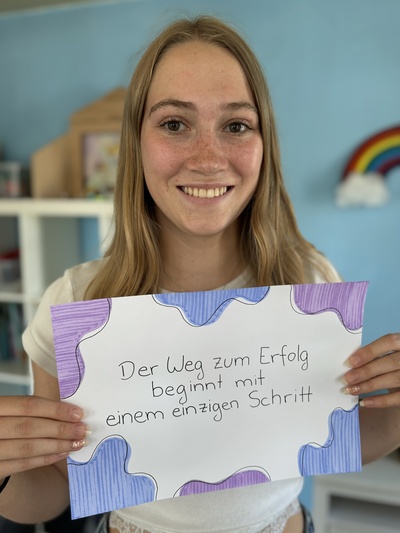 Der Weg zum Erfolg
beginnt mit
einem einzigen Schritt